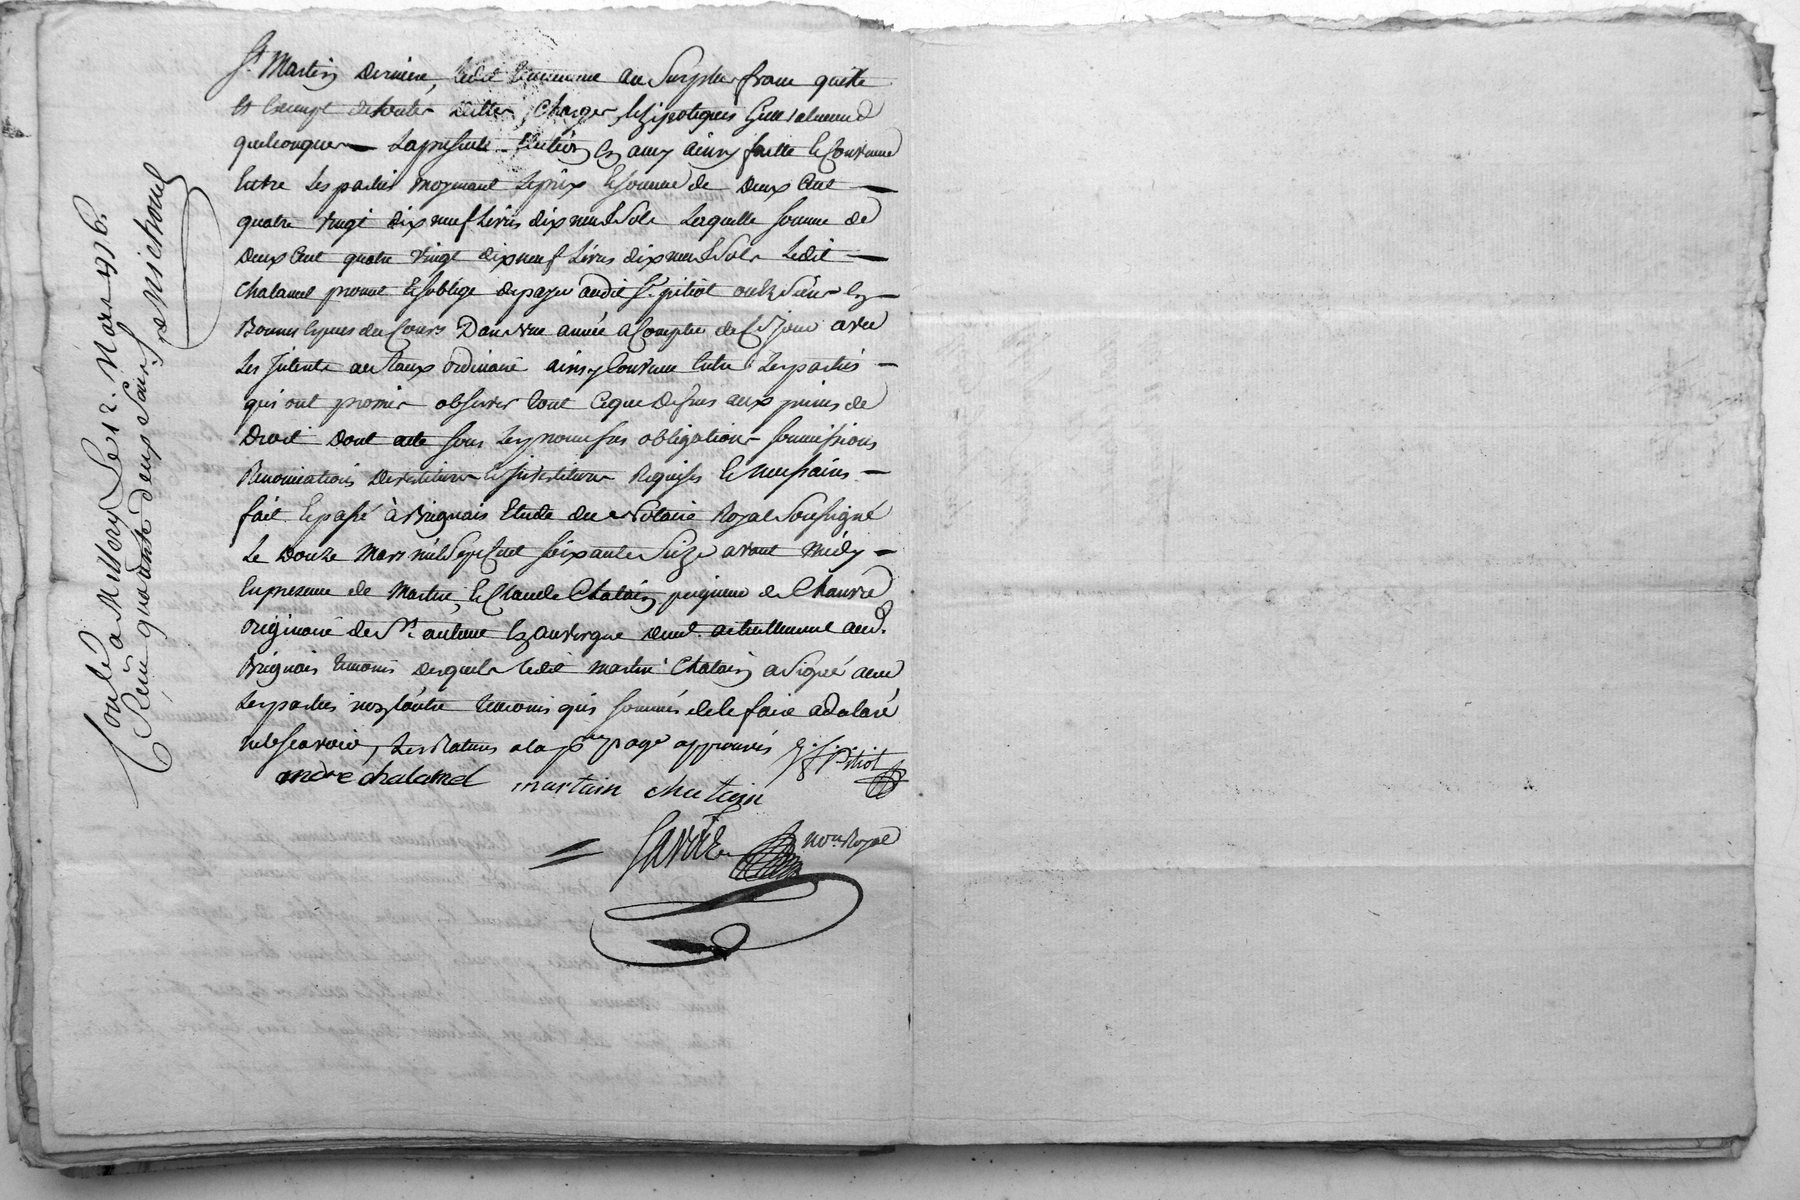 St Martin derniere, ledit immeuble au Surplus franc quitte
et Exempt detoutes dettes, charges, hipoteques Generalement
quelconques — Lapresente vente ainsy faitte et convenue
Entre Les parties moyenant leprix et somme de deux Cent —
quatre vingt dixneuf Livres dixneuf Sols Laquelle somme de
deux Cent quatre vingt dixneuf Livres dixneuf Sols Ledit —
chalamel promet et soblige depayer audit Sr pitiot ou aux Siens en —
Bonnes Especes du Cours Dans une année a Compter de ce jour avec
Les Interets au taux ordinaire ainsy convenu Entre Lesparties —
qui ont promis observer tout ceque dessus aux peines de
Droit dont acte sous Les obligations soumissions
Renonciations devestitures et investitures Requises et necessaires —
fait et passé à Brignais Etude du Notaire Royal Soussigné
Le douze Mars mil Sept Cent soixante Seize avant midy —
En presence de Martin, et Claude Chatain peigneurs de Chanvre
originaire de St. anteme en auvergne demt. actuellement aud.
Brignais temoins desquels Ledit martin Chatain a Signé avec
Lesparties non L'autre temoin qui sommés de le faire a declaré
nele scavoir, Les Ratures a la pre page approuvés G. J. Pitiot
andre chalamel martain chatain
Not. Royal
Conlé a Millery Le 12. Mars 1776.
Reçu quatante deux Sols.